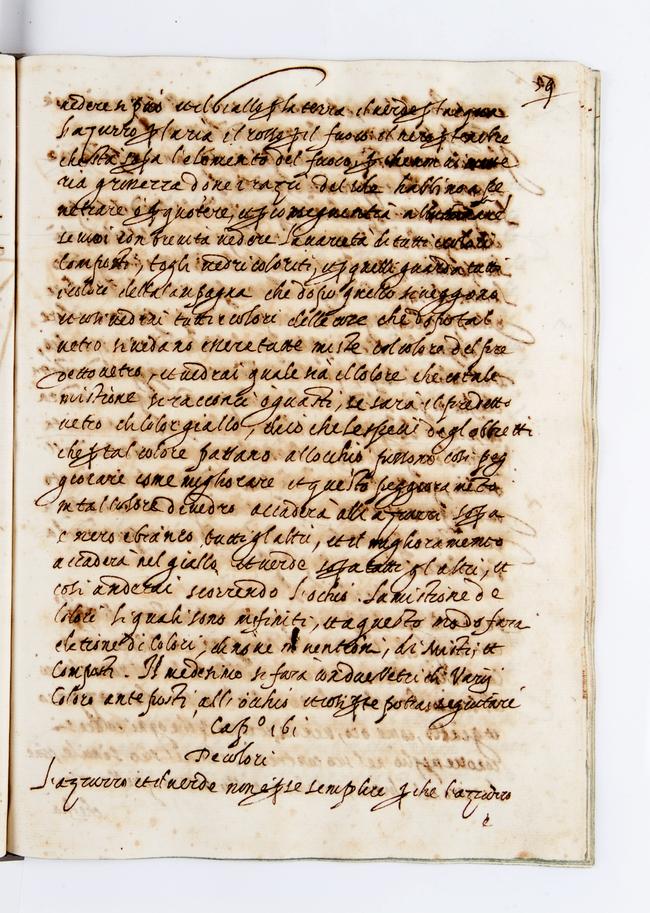 59
vedere si può et il giallo p la terra il verde p l'acqua
l'azzurro p l'aria il rosso p il fuoco il nero p tenebre
che sta sopra l'elemento del fuoco p che non vi è mate
ria grossezza dove i razzi del sole habbino a pe
netrare e percuotere, et p conseguentia alluminare
se vuoi con brevità vedere la varietà di tutti i colori
composti, togli vedri coloriti, et p quelli guarda tutti
i colori della campagna che dopo quello si veggono
et così vedrai tutti i colori delle cose che dopo tal
vetro si vedano essere tutte miste col colore del pre
detto vetro, et vedrai quale sia il colore che con tale
mistione si racconci o guasti, se sarà il predetto
vetro di color giallo, dico che le spetie degl obbietti
che p tal colore passano all occhio possono così peg
giorare come migliorare et questo peggioramento
in tal colore di vedro accaderà all azzurri sopra
e nero e bianco tutti gl altri, et il miglioramento
accaderà nel giallo et verde sopra tutti gl altri, et
così anderai scorrendo l'ochio la mistione de
colori li quali sono infiniti, et a questo modo fara
eletione di colori, di nove inventioni, di misti, et
composti. Il medesimo si farà con due vetri di varij
Coloro ante posti all'occhio et così p te potrai seguitare
Cap.º 161
De colori
L'azzurro et il verde non è p se semplice p che l'azzurro
è